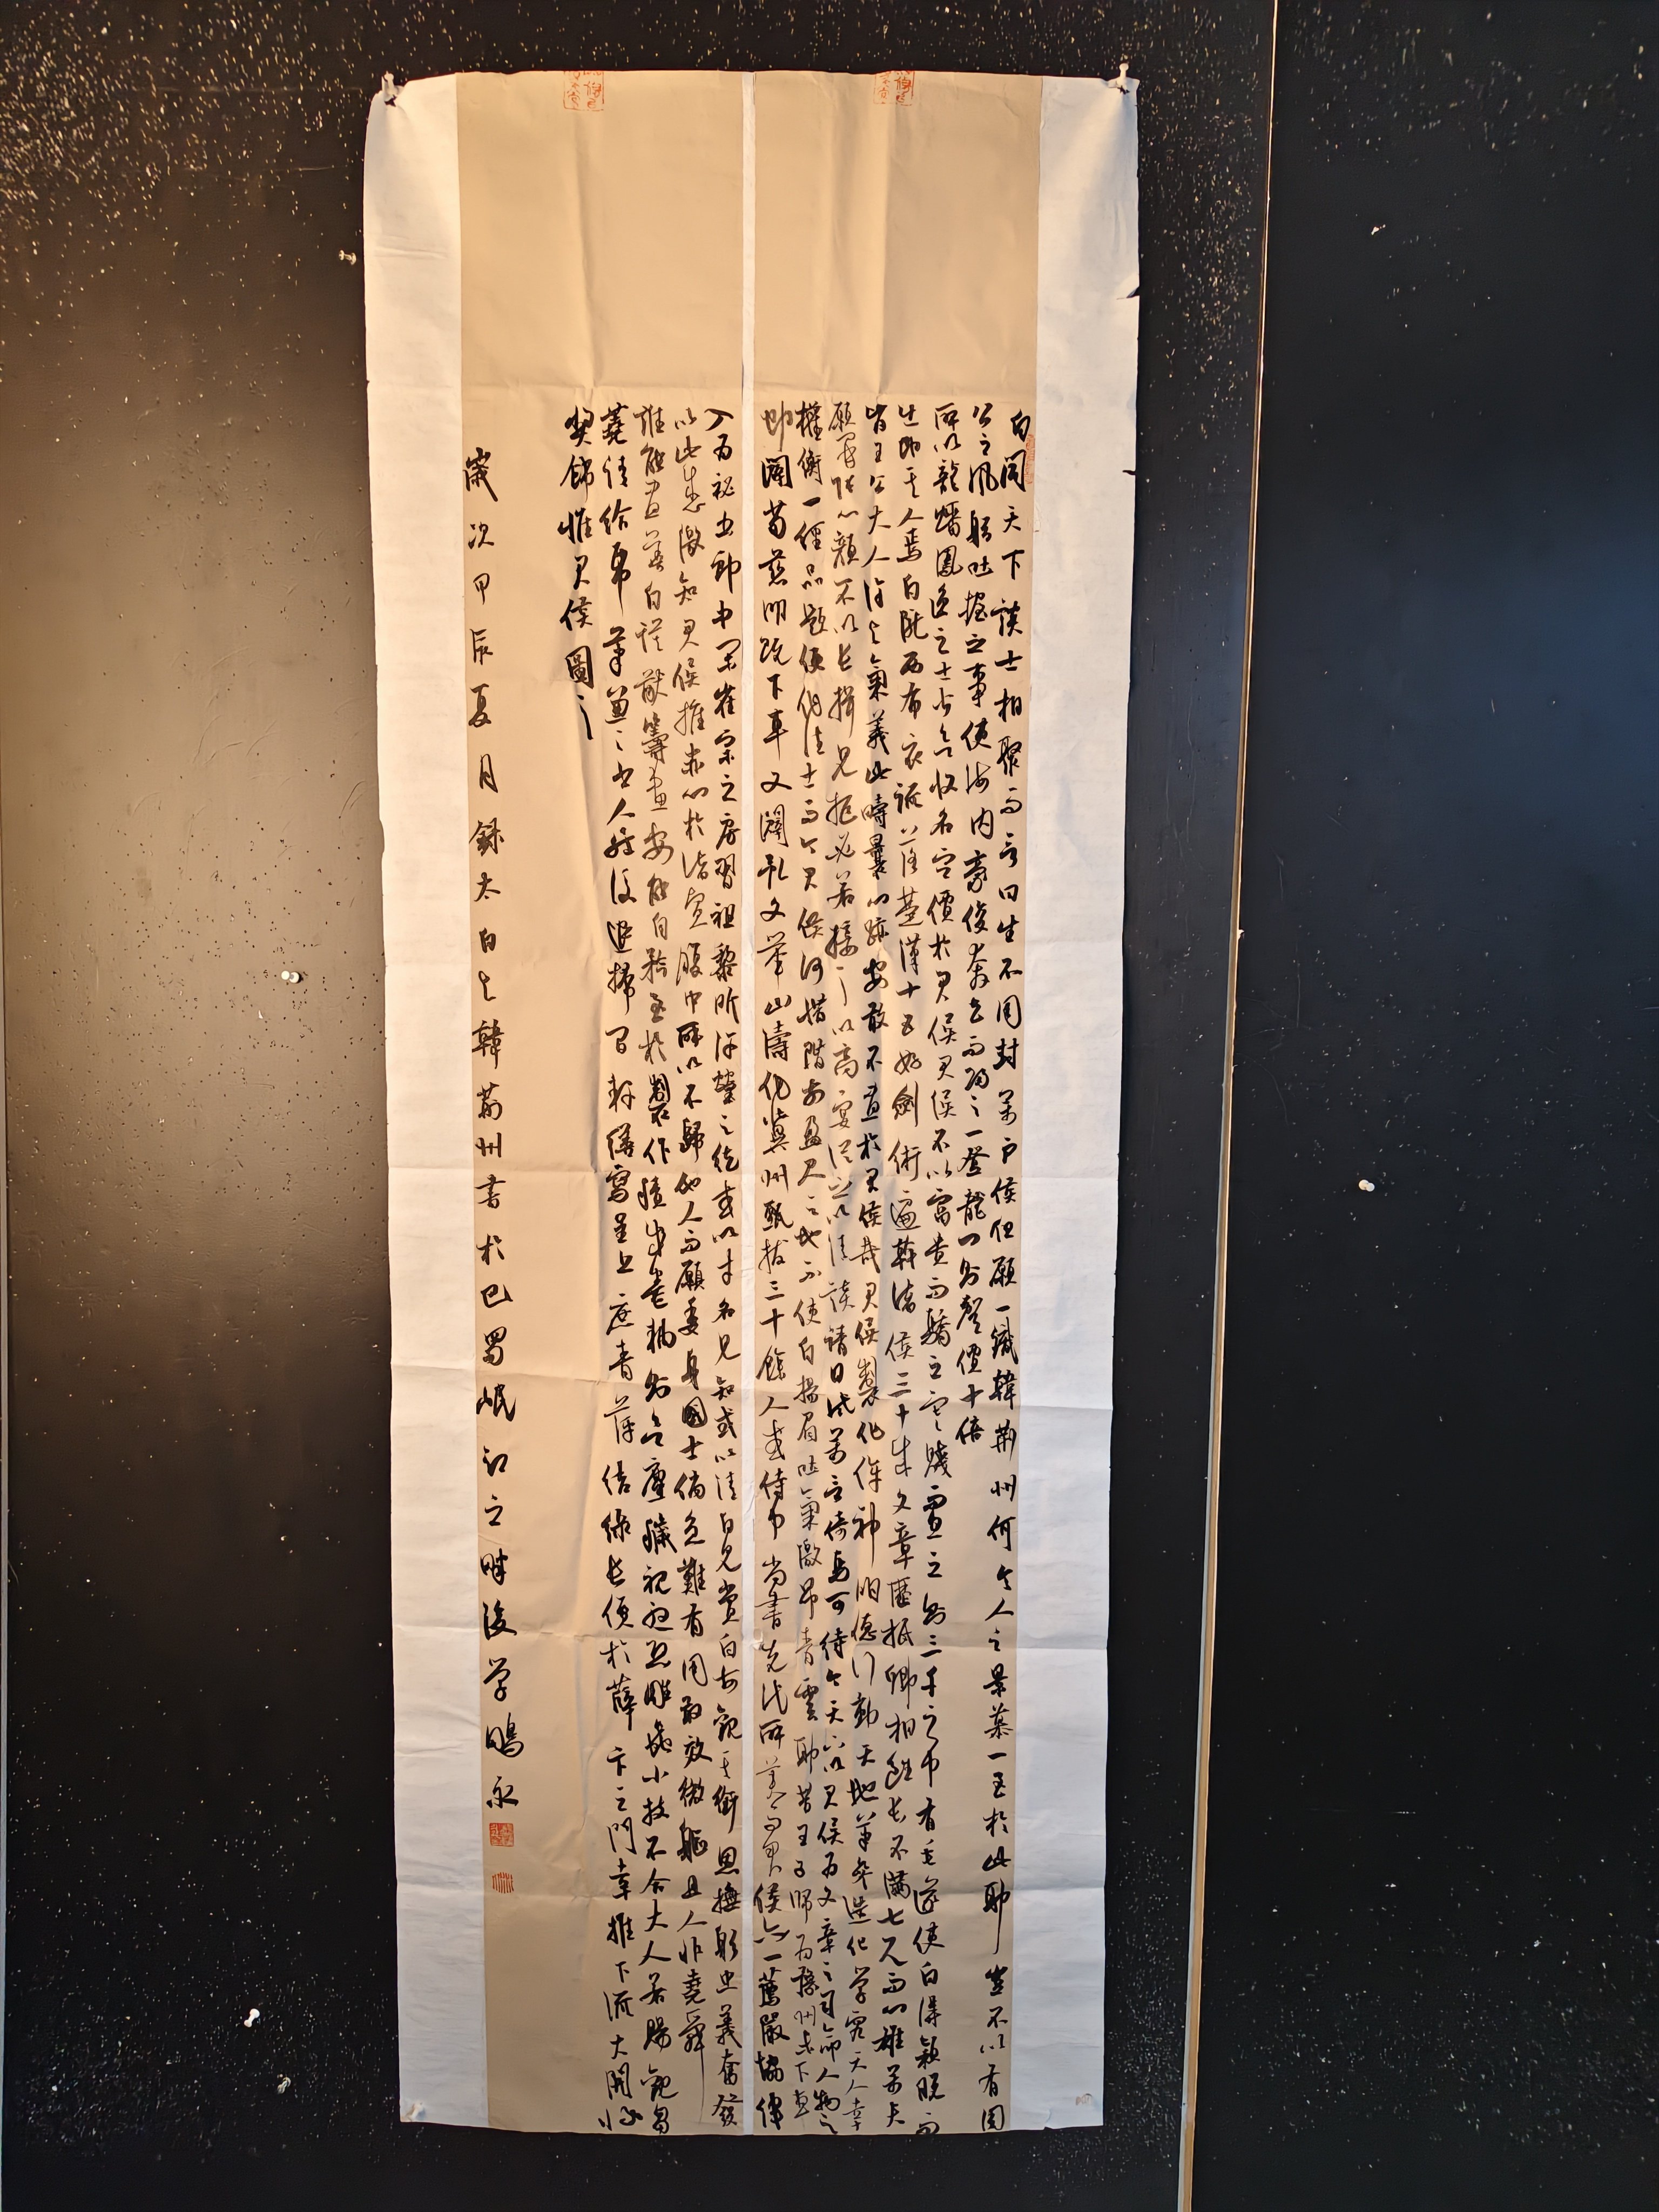 白聞天下談士相聚而言曰生不用封萬戶侯但願一識韓荊州何令人之景慕一至於此耶豈不以有周
公之風躬吐握之事使海内豪俊奔走而歸之一登龍門則聲價十倍
所以龍蟠鳳逸之士皆欲收名定價於君侯君侯不以富貴而驕之寒賤而忽之則三千之中有毛遂使白得穎脫而
出即其人焉白隴西布衣流落楚漢十五好劍術遍幹諸侯三十成文章歷抵卿相雖長不滿七尺而心雄萬夫
皆王公大人許與氣義此疇曩心跡安敢不盡於君侯哉君侯製作侔神明德行動天地筆參造化學究天人幸
願開張心顏不以長揖見拒必若接之以高宴縱之以清談請日試萬言倚馬可待今天下以君侯為文章之司命人物之
權衡一經品題便作佳士而今君侯何惜階前盈尺之地不使白揚眉吐氣激昂青雲耶昔王子師為豫州未下車
即闢荀慈明既下車又闢孔文舉山濤作冀州甄拔三十餘人或侍中尚書先代所美而君侯亦一薦嚴協律
入為祕書郎中間崔宗之房習祖黎昕許瑩之徒或以才名見知或以清白見賞白每觀其銜恩撫躬忠義奮發
以此感激知君侯推赤心於諸賢腹中所以不歸他人而願委身國士倘急難有用敢效微軀且人非堯舜
誰能盡善白謨猷籌畫安能自矜至於製作積成卷軸則欲塵穢視聽恐雕蟲小技不合大人若賜觀芻
蕘請給紙筆兼之書人然後退掃閒軒繕寫呈上庶青萍結綠長價於薛卞之門幸推下流大開
獎飾惟君侯圖之
歲次甲辰夏月錄太白之韓荊州書於巴蜀岷江之畔後学鵬永